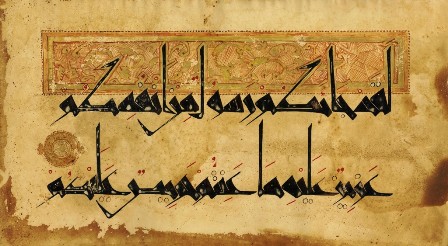 لقد جاءكم رسول من أنفسكم
عزيز عليه ما عنتم حريص عليكم